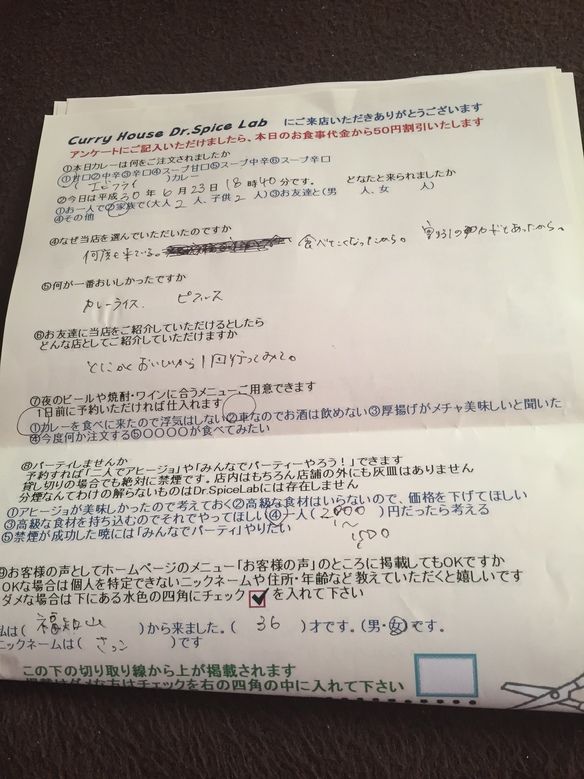 Curry House Dr.Spice Lab にご来店いただきありがとうございます
アンケートにご記入いただけましたら、本日のお食事代金から50円割引いたします
①本日カレーは何をご注文されましたか
①甘口②中辛③辛口④スープ甘口⑤スープ中辛⑥スープ辛口
( エビフライ )カレー
②今日は平成30年6月23日18時40分です。 どなたと来られましたか
①お一人で②家族で(大人2人、子供2人)③お友達と(男 人、女 人)
④その他
④なぜ当店を選んでいただいたのですか
何度も来ている。 食べたくなったから。
⑤何が一番おいしかったですか
カレーライス. ピクルス
⑥お友達に当店をご紹介していただけるとしたら
どんな店としてご紹介していただけますか
とにかくおいしいから1回行ってみて。
⑦夜のビールや焼酎・ワインに合うメニューご用意できます
1日前に予約いただければ仕入れます
①カレーを食べに来たので浮気はしない②車なのでお酒は飲めない③厚揚げがメチャ美味しいと聞いた
④今度何か注文する⑤〇〇〇〇が食べてみたい
⑧パーティしませんか
予約すれば「二人でアヒージョ」や「みんなでパーティーやろう!」できます
貸し切りの場合でも絶対に禁煙です。店内はもちろん店舗の外にも灰皿はありません
分煙なんてわけの解らないものはDr.SpiceLabには存在しません
①アヒージョが美味しかったので考えておく②高級な食材はいらないので、価格を下げてほしい
③高級な食材を持ち込むのでそれでやってほしい④一人(2000)円だったら考える
〜
1500
⑤禁煙が成功した暁には「みんなでパーティ」やりたい
⑨お客様の声としてホームページのメニュー「お客様の声」のところに掲載してもOKですか
OKな場合は個人を特定できないニックネームや住所・年齢など教えていただくと嬉しいです
ダメな場合は下にある水色の四角にチェック を入れて下さい
私は( 福知山 )から来ました。( 36 )才です。(男・女)です。
ニックネームは( さっこ )です
この下の切り取り線から上が掲載されます
掲載はダメな方はチェックを右の四角の中に入れて下さい